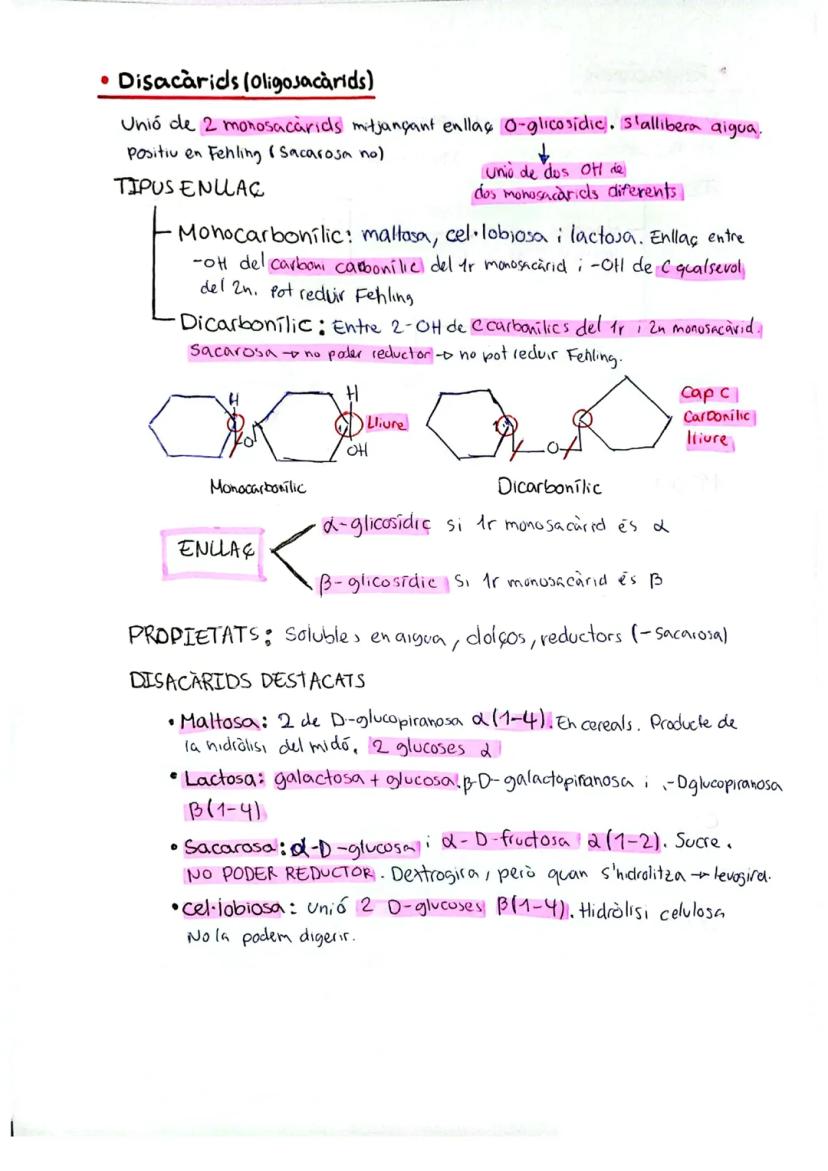 • Disacàrids (Oligosacàrids)
Unió de 2 monosacàrids mitjançant enllaç O-glicosídic. S'allibera aigua.
Positiu en Fehling (Sacarosa no)
Unió de dos OH de
dos monosacàrids diferents
TIPUS ENLLAÇ
Monocarbonílic: maltosa, cel·lobiosa i lactosa. Enllaç entre
-OH del carboni carbonílic del 1r monosacàrid i -OH de C qualsevol
del 2n. Pot reduir Fehling
Dicarbonílic: Entre 2-OH de C carbonílics del 1r i 2n monosacàrid.
Sacarosa → no poder reductor → no pot reduir Fehling.
H
O
H
OH
Lliure
O
Cap C
Carbonílic
lliure
Monocarbonílic
Dicarbonílic
ENLLAÇ
α-glicosídic si 1r monosacàrid és α
β-glicosídic si 1r monosacàrid és β
PROPIETATS: Solubles en aigua, dolços, reductors (-Sacarosa)
DISACÀRIDS DESTACATS
• Maltosa: 2 de D-glucopiranosa α(1-4). En cereals. Producte de
la hidròlisi del midó. 2 glucoses α
• Lactosa: galactosa + glucosa. β-D-galactopiranosa i -Dglucopiranosa
β(1-4)
• Sacarosa: α-D-glucosa i α-D-fructosa α(1-2). Sucre.
NO PODER REDUCTOR. Dextrogira, però quan s'hidrolitza → levogira.
• Cel·lobiosa: Unió 2 D-glucoses β(1-4). Hidròlisi celulosa
No la podem digerir.